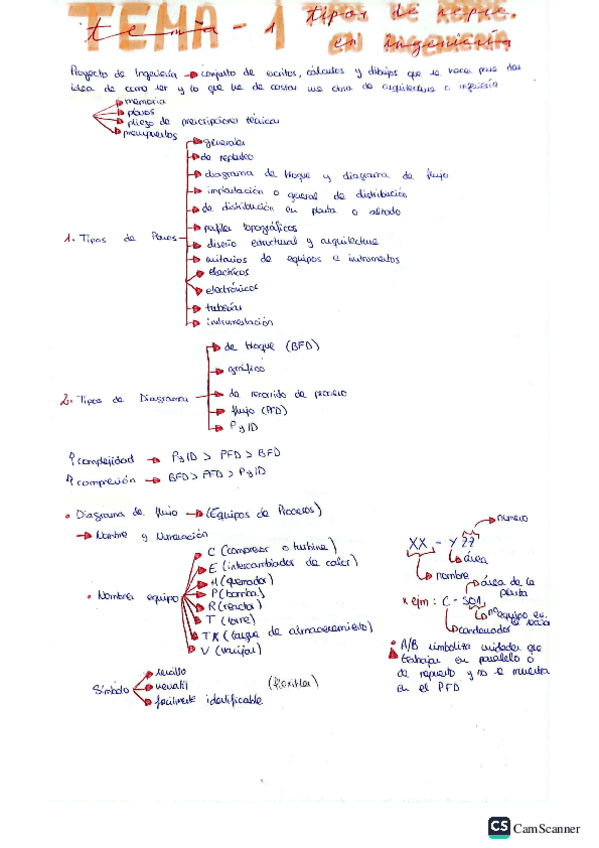 TEMA - 1 tipos de repre.
en ingeniería
Proyecto de Ingeniería → conjunto de escritos, cálculos y dibujos que se hacen para dar
idea de como ser y lo que ha de costar una obra de arquitectura o ingeniería
memoria
planos
pliego de prescripciones técnicas
presupuestos
1. Tipos de Planos
generales
de replanteo
diagrama de bloque y diagrama de flujo
implantación o general de distribución
de distribución en planta o alzado
perfiles topográficos
diseño estructural y arquitectura
unitarios de equipos e instrumentos
electricos
electrónicos
tuberías
instrumentación
2. Tipos de Diagrama
de bloque (BFD)
gráfico
de recorrido de proceso
flujo (PFD)
P y ID
↑ complejidad → PyID > PFD > BFD
↑ comprensión → BFD > PFD > PyID
• Diagrama de flujo → (Equipos de Procesos)
→ Nombre y Numeración
• Nombres equipo
C (compresor o turbina)
E (intercambiador de calor)
H (quemador)
P (bomba)
R (reactor)
T (torre)
TK (tanque de almacenamiento)
V (vasijas)
Símbolo
sencillo
versatil (flexibles)
facilmente identificable
numero
XX - YZZ
área
nombre
área de la
planta
* ejm: C - 501
nº equipo en
condensador
• A/B simboliza unidades que
trabajan en paralelo o
de repuesto y no se muestra
en el PFD
CS CamScanner